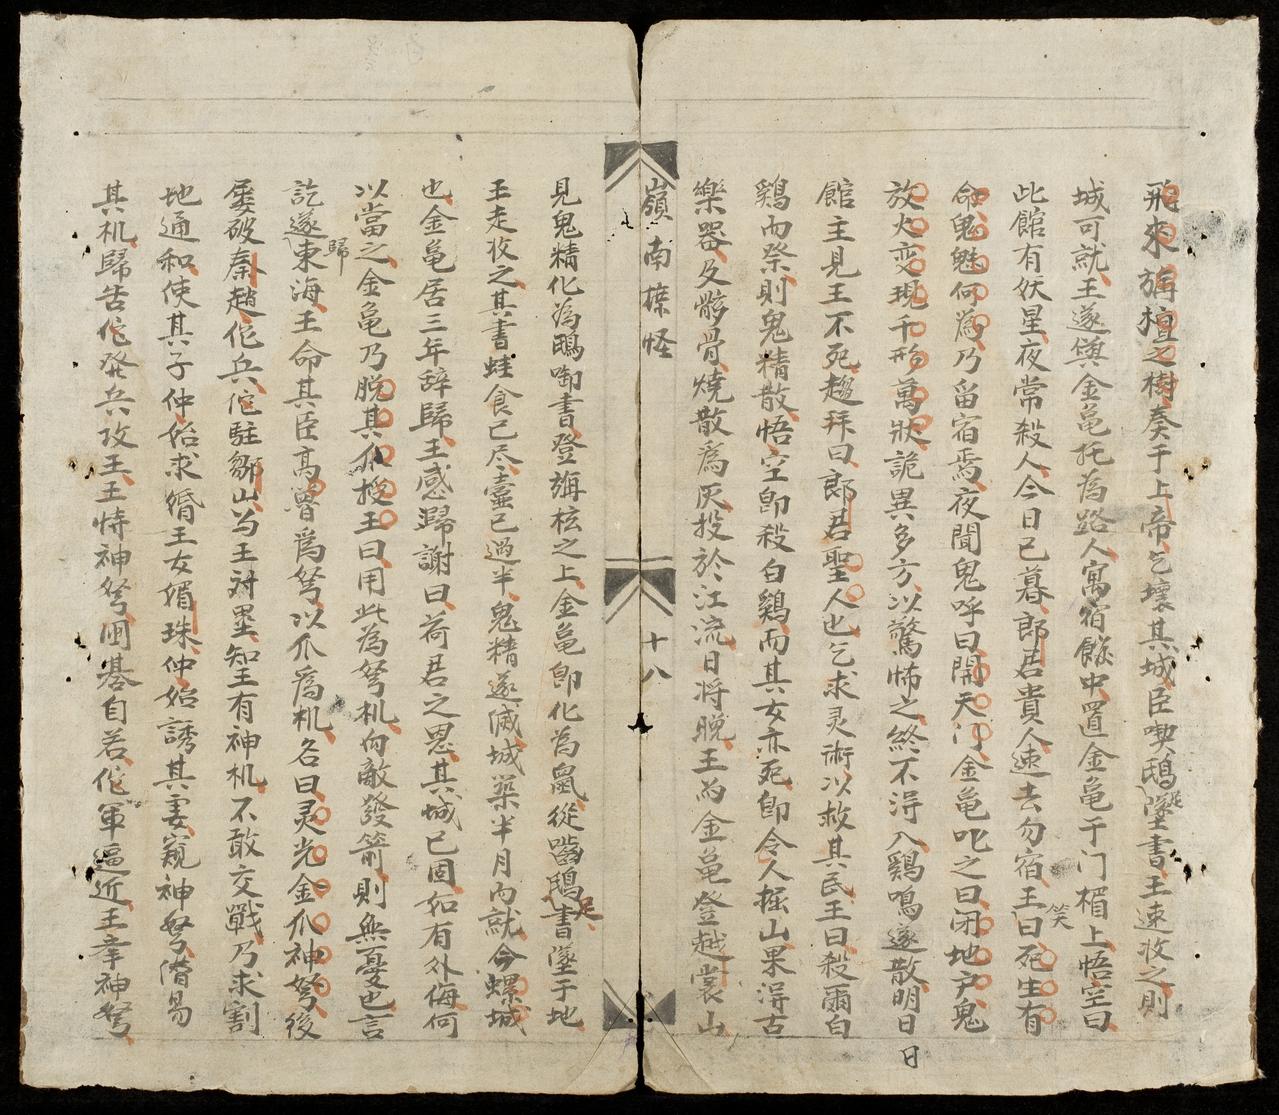 飛來旃檀之樹奏于上帝乞壞其城臣喫鴟墜書王速收之則
城可就王遂與金亀托為路人寓宿館中置金亀于门楣上悟空曰
此館有妖星夜常殺人今日已暮郎君貴人速去勿宿王笑曰死生有
命鬼魅何為乃留宿焉夜聞鬼呼曰開天门金亀叱之曰闭地户鬼
放火变現千形萬狀詭異多方以驚怖之終不淂入鷄鳴遂散明日
日
館主見王不死趨拜曰郎君聖人也乞求灵術以救其民王曰殺爾白
鷄而祭則鬼精散悟空即殺白鷄而其女亦死即令人掘山果淂古
樂器及骸骨燒散爲灰投於江流日将晚王与金亀登越裳山
嶺南摭怪
十八
見鬼精化為鴟啣書登旃枟之上金亀即化為鼠從嚙鴟足書墜于地
王走收之其書蛀食已尽臺已過半鬼精遂滅城築半月而就今螺城
也金亀居三年辞歸王感謝曰荷君之恩其城已固如有外侮何
以當之金亀乃脱其爪授王曰用此為弩机向敵發箭則無憂也言
訖遂歸東海王命其臣高魯爲弩以爪爲机名曰灵光金爪神弩後
屡破秦趙佗兵佗駐鄒山与王对壘知王有神机不敢交戰乃求割
地通和使其子仲始求婚王女媚珠仲始誘其妻窺神弩潛易
其机歸告佗発兵攻王王恃神弩囲碁自若佗軍逼近王牽神弩